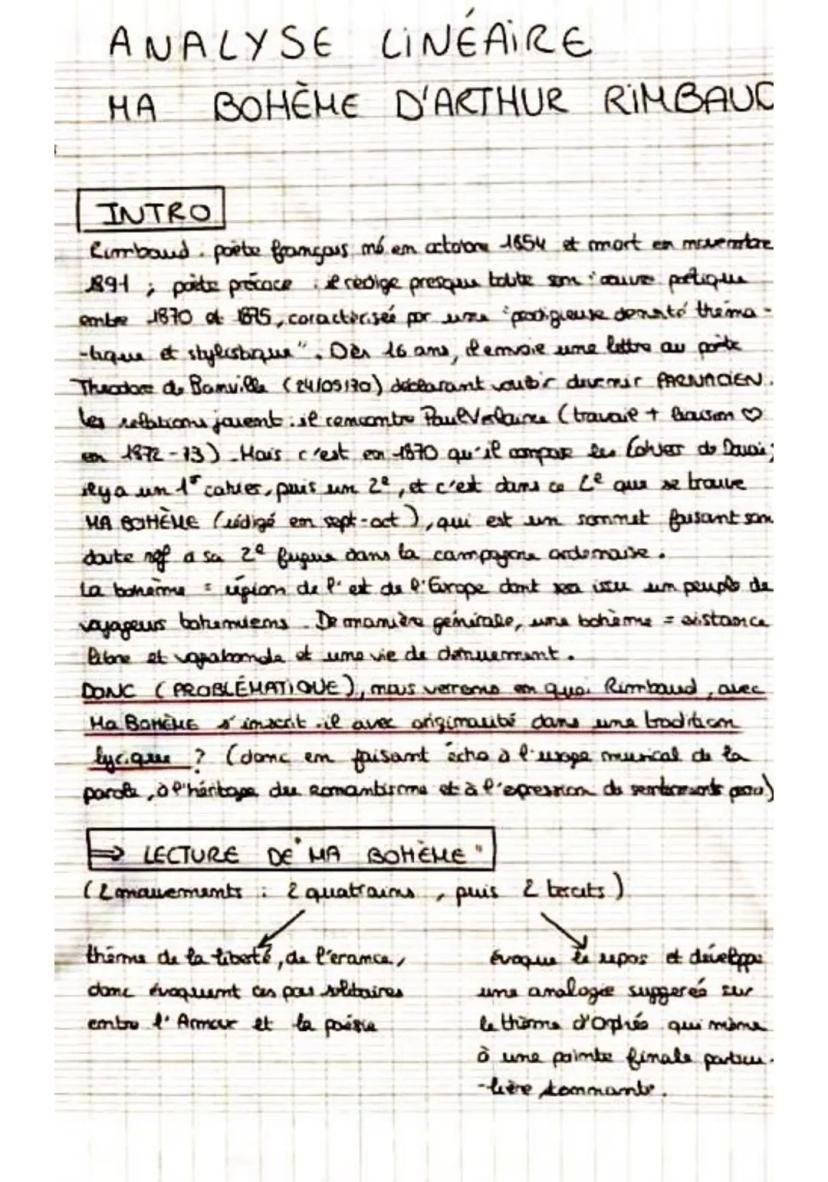 ANALYSE LINÉAIRE
MA BOHÈME D'ARTHUR RIMBAUD
INTRO
Rimbaud : poète français né en octobre 1854 et mort en novembre
1891 ; poète précoce : il rédige presque toute son œuvre poétique
entre 1870 et 1875, caractérisée par une "prodigieuse densité théma-
-tique et stylistique". Dès 16 ans, il envoie une lettre au poète
Theodore de Banville (24/05/70) déclarant vouloir devenir PARNACIEN.
Les relations jouent : il rencontre Paul Verlaine (travail + liaison ♡
en 1872-73). Mais c'est en 1870 qu'il compose les Cahier de Douai ;
il y a un 1er cahier, puis un 2e, et c'est dans ce 2e que se trouve
MA BOHÈME (rédigé en sept-oct), qui est un sonnet faisant sans
doute réf à sa 2e fugue dans la campagne ardennaise.
La bohème = région de l'est de l'Europe dont est issu un peuple de
voyageurs bohémiens. De manière générale, une bohème = existance
libre et vagabonde et une vie de dénuement.
DONC (PROBLÉMATIQUE), nous verrons en quoi Rimbaud, avec
Ma BOHÈME s'inscrit-il avec originalité dans une tradition
lyrique ? (donc en faisant écho à l'usage musical de la
parole, à l'héritage du romantisme et à l'expression de sentiments perso)
⇒ LECTURE DE "MA BOHÈME"
(2 mouvements : 2 quatrains, puis 2 tercets)
thème de la liberté, de l'errance,
donc évoquent ces pas solitaires
entre l'Amour et la poésie
évoque le repos et développe
une analogie suggerée sur
le thème d'Orphée qui mène
à une pointe finale particu-
-lière